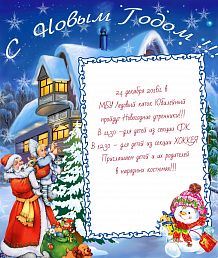 С Новым Годом!!!
24 декабря 2016г. в
МБУ Ледовый каток Юбилейный
пройдут Новогодние утренники!!!
В 11.30 - для детей из секции ФК
В 12.30 - для детей из секции ХОККЕЯ
Приглашаем детей и их родителей
в нарядных костюмах!!!